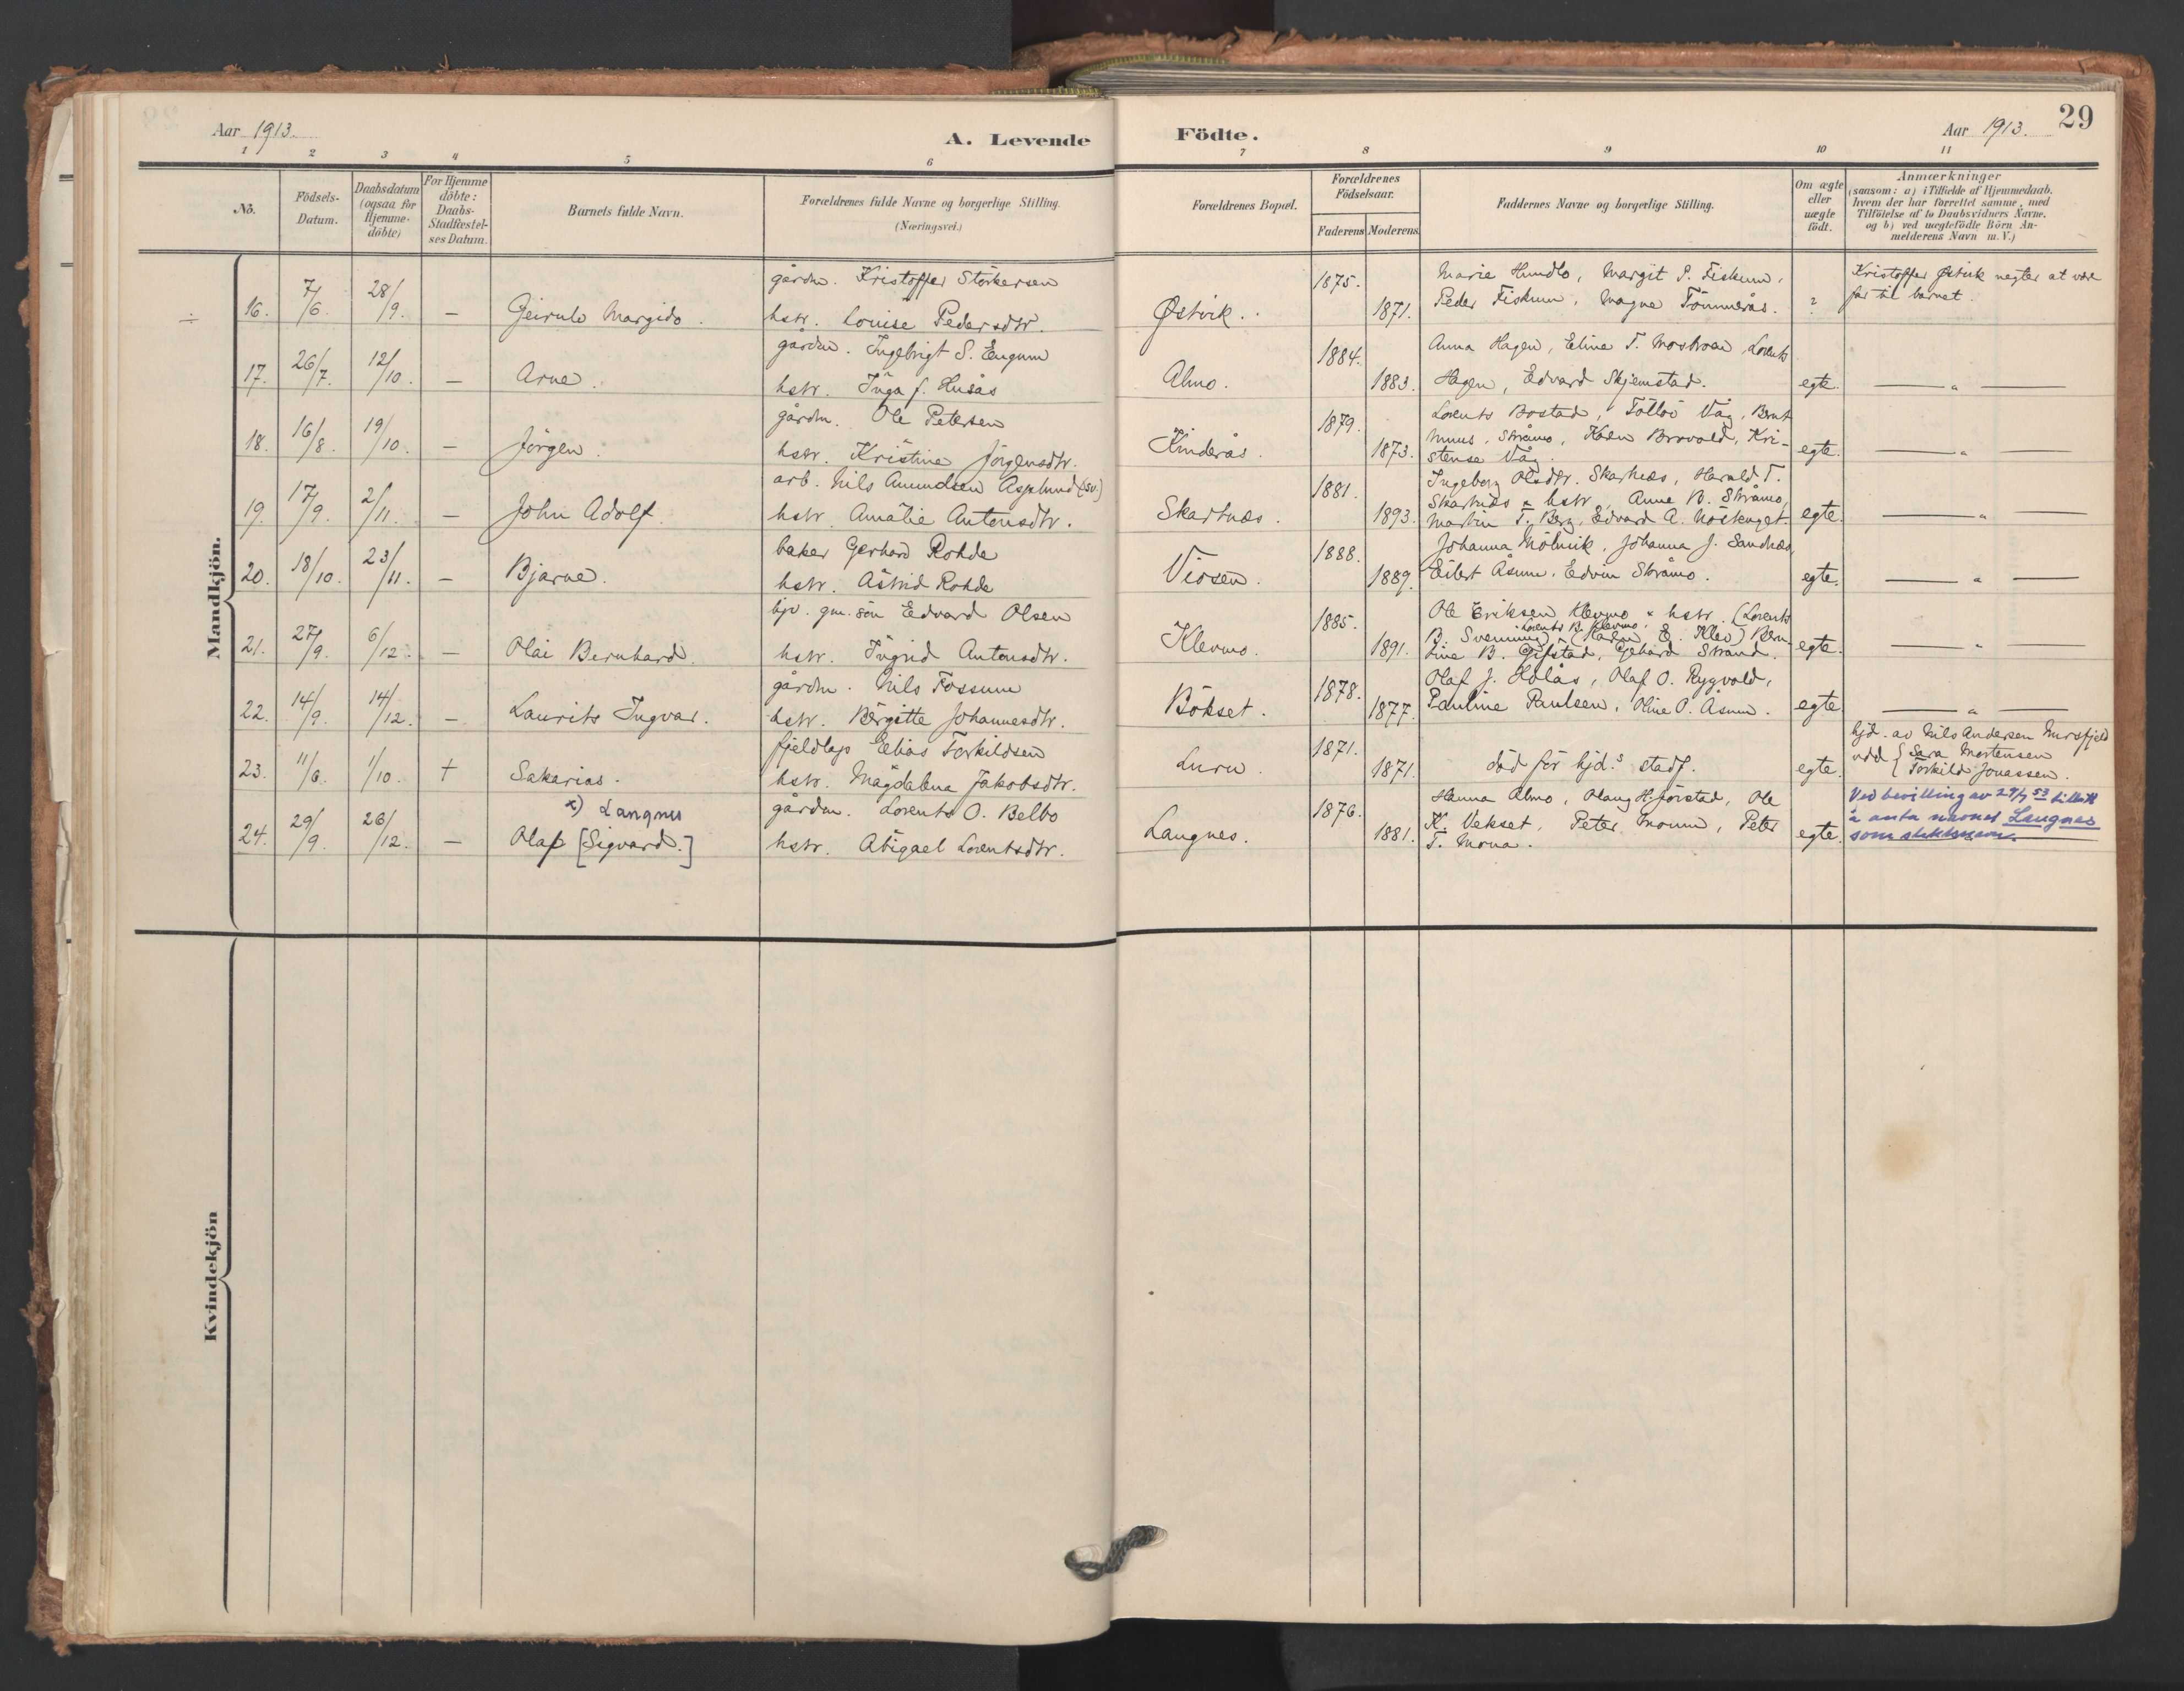 Aar 1913.
A. Levende
Födte.
Aar 1913. 29
1 2 3 4 5 6 7 8 9 10 11
No.
Födsels-
Datum.
Daabsdatum
(ogsaa for
Hjemme-
döbte)
For Hjemme
döbte:
Daabs-
Stadfæstel-
ses Datum.
Barnets fulde Navn.
Forældrenes fulde Navne og borgerlige Stilling.
(Næringsvei.)
Forældrenes Bopæl.
Forældrenes
Födselsaar.
Faderens Moderens
Faddernes Navne og borgerlige Stilling.
Om ægte
eller
uægte
födt.
Anmærkninger
(saasom: a) i Tilfælde af Hjemmedaab.
hvem der har forrettet samme, med
Tilföielse af to Daabsvidners Navne.
og b) ved uægtefödte Börn An-
melderens Navn m. V.)
Mandkjön.
÷ 16. 7/6. 28/9. — Geirulv Margido.
gårdm. Kristoffer Störkersen
hstr. Louise Pedersdtr.
Østvik. 1875. 1871.
Marie Hundlo, Margit P. Fiskum,
Peder Fiskum, Magne Tömmerås. ?
Kristoffer Østvik negter at være
far til barnet.
17. 26/7. 12/10. — Arne.
gårdm. Ingebrigt S. Engum
hstr. Inga f. Husås
Almo. 1884. 1883.
Anna Hagen, Eline T. Mostroen, Lorents
Hagen, Edvard Skjemstad. egte. — " —
18. 16/8. 19/10. — Jörgen.
gårdm. Ole Petersen
hstr. Kristine Jörgensdtr.
Kinderås. 1879. 1873.
Lorents Bostad, Tollöv Våg, Bernt
Stråmo, Karen Brovold, Kri-
stense Våg. egte. — " —
19. 17/9. 2/11. — John Adolf.
arb. Nils Amundsen Asplund (sv.)
hstr. Amalie Antonsdtr.
Skartnæs. 1881. 1893.
Ingeborg Olsdtr. Skartnæs, Harald T.
Skartnæs & hstr. Anne B. Stråmo,
Martin T. Berg, Edvard A. Moskuget. egte. — " —
20. 18/10. 23/11. — Bjarne.
baker Gerhard Rohde
hstr. Astrid Rohde
Viosen. 1888. 1889.
Johanna Mölnvik, Johanna J. Sandnæs,
Eilert Åsum, Edvin Stråmo. egte. — " —
21. 27/9. 6/12. — Olai Bernhard.
bjv. gm. sön Edvard Olsen
hstr. Ingrid Antonsdtr.
Klevmo. 1885. 1891.
Ole Eriksen Klevmo & hstr. (Lorents
Lorents B. Klevmo,
B. Svenning) (Karen E. Klev) Bern-
tine B. Gifstad, Gebhard Strand. egte. — " —
22. 14/9. 14/12. — Laurits Ingvar.
gårdm. Nils Fossum
hstr. Bergitte Johannesdtr.
Bökset. 1878. 1877.
Olaf J. Holås, Olaf O. Rygvold,
Pauline Paulsen, Oline P. Åsum. egte — " —
23. 11/6. 1/10. + Sakarias.
fjeldlap Elias Torkildsen
hstr. Magdalena Jakobsdtr.
Luru. 1871. 1871.
död för hjd.s stadf. egte.
hjd. av Nils Andersen Mursfjeld
vdd { Sara Mortensen
Torkild Jonassen.
24. 29/9. 26/12. —
x) Langnes
Olaf [Sigvard.]
gårdm. Lorents O. Belbo
hstr. Abigael Lorentsdtr.
Langnes. 1876. 1881.
Hanna Almo, Olaug H. Jörstad, Ole
K. Vekset, Peter Moum, Peter
T. Mona. egte.
Ved bevilling av 29/7 53 tillatt
å anta navnet Langnes
som slektsnavn.
Kvindekjön